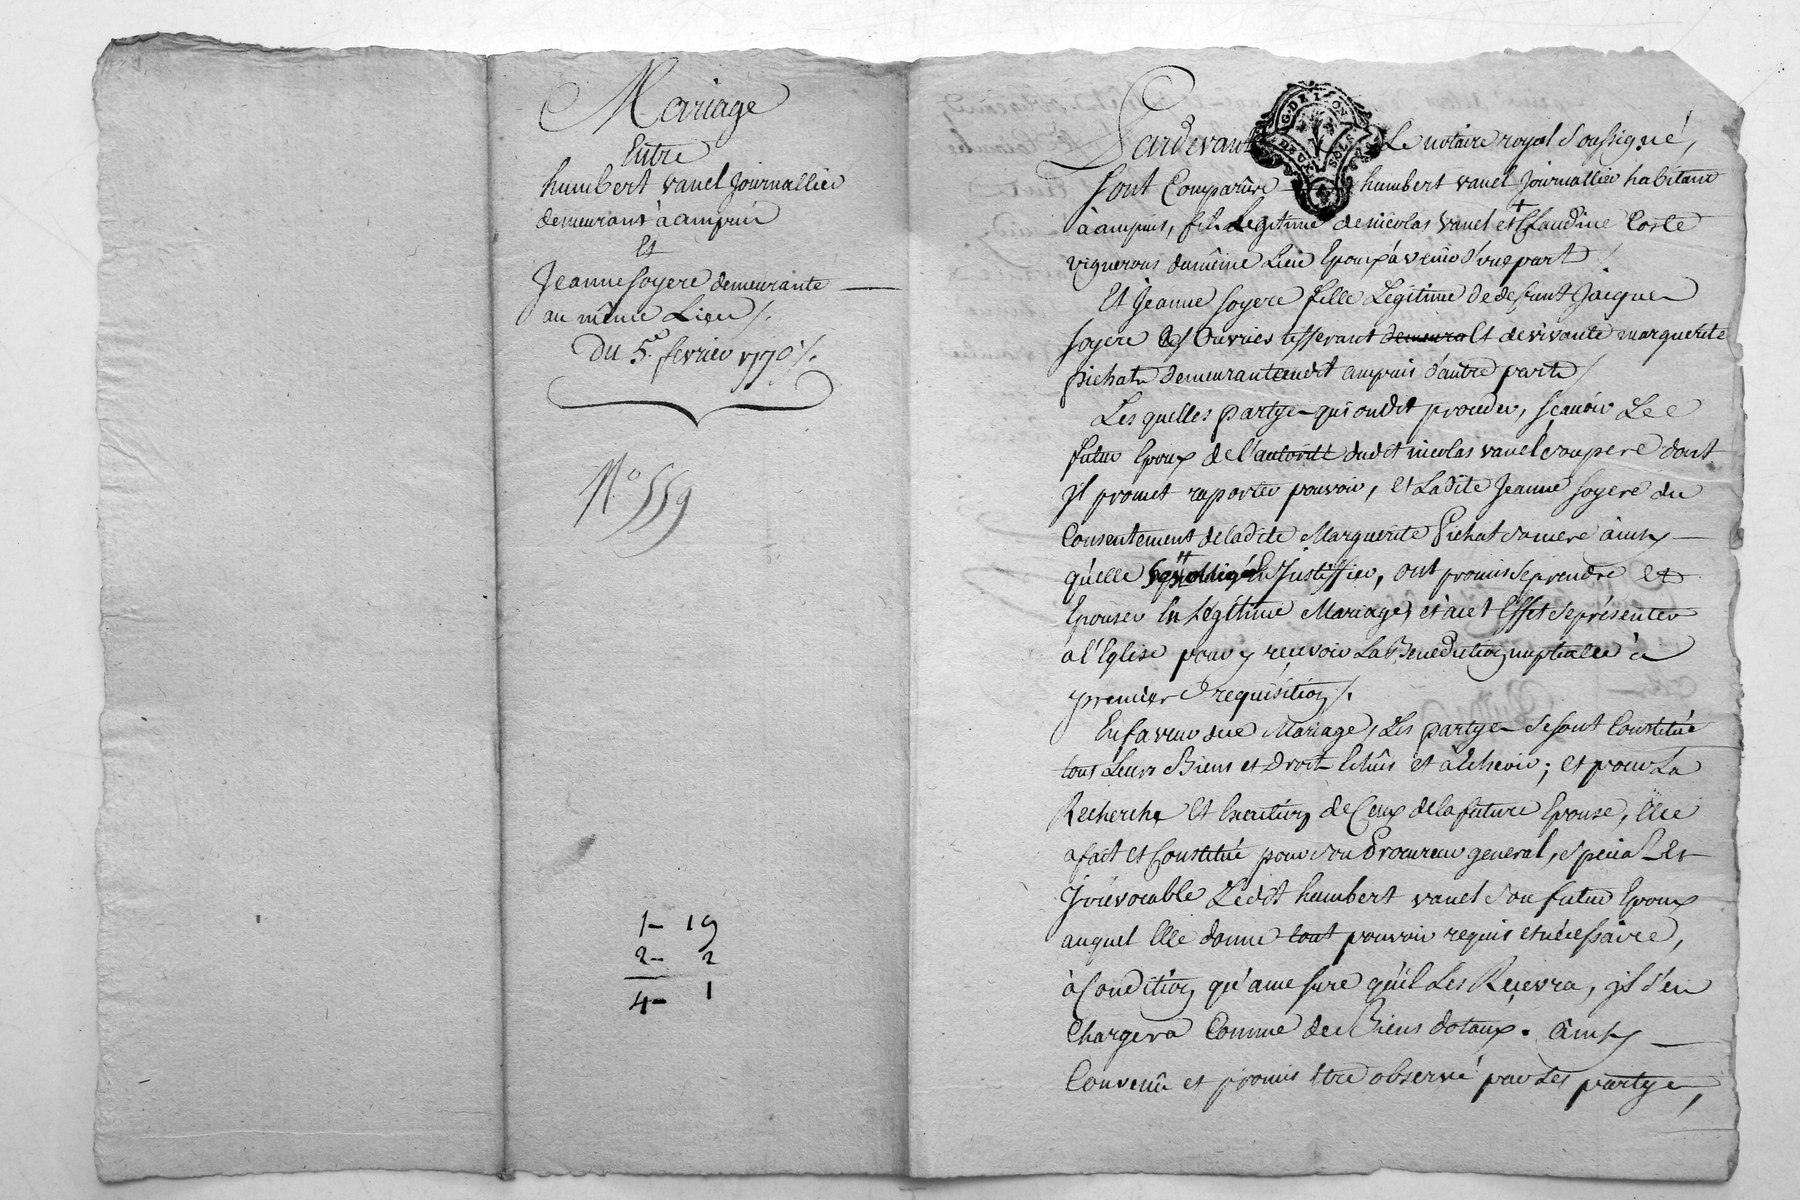 Mariage
Entre
humbert vanel Journallier
demeurant à ampuis
Et
Jeanne soyere demeurante
au même Lieu /.
Du 5e. fevrier 1770 /.
No 559
1 - 19
2 - 2
4 - 1
Pardevant Le notaire royal soussigné,
G. DE LYON
DEUX SOLS
sont Comparûs humbert vanel Journallier habitant
à ampuis, fils Legitime de nicolas vanel et + Claudine Coste
vignerons du même Lieu Epoux à venir d'une part /.
Et Jeanne soyere fille Legitime de defunt Jacques
soyere Ouvrier tisserant demeura Et de vivante marguerite
pichat demeurante audit ampuis d'autre part /
Les quelles partyes qui ont dit proceder, sçavoir Le
futur Epoux de l'autorité dudit nicolas vanel son pere dont
il promet raporter pouvoir, et Ladite Jeanne soyere du
Consentement de ladite Marguerite Pichat sa mere ainsy
qu'elle Justiffier, ont promis se prendre et
Epouser En Légitime Mariage, et à cet Effet se présenter
à l'Eglise pour y recevoir La Bénédiction nuptialle à
premiere requisition /.
En faveur du Mariage, Les partyes se sont Constitué
tous Leurs Biens et Droits Echûs et à Echeoir ; et pour La
Recherche Et Exaction de Ceux de la future Epouse, Elle
a fait et Constitué pour son Procureur general, special Et
Irrévocable Ledit humbert vanel son futur Epoux
auquel Elle donne tout pouvoir requis et nécessaire,
à Condition qu'a mesure qu'il Les Recevra, il s'en
Chargera Comme de Biens dotaux. ainsy
Convenû et promis Etre observé par Les partyes,